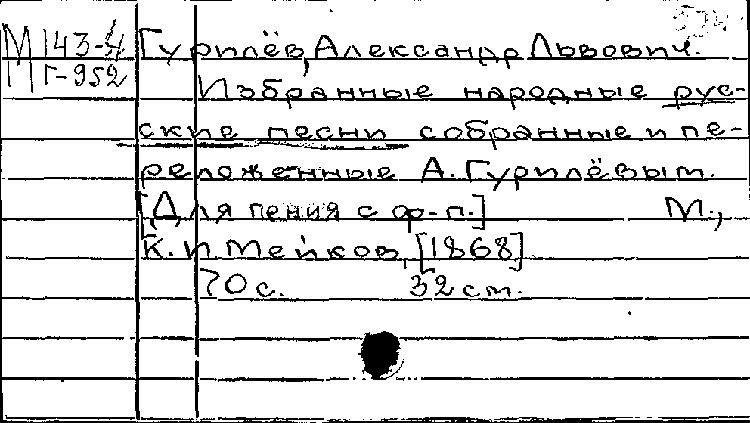 М 143-4 Гурилёв, Александр Львович.
Г-952
Избранные народные рус-
ские песни собранные и пе-
реложенные А. Гурилёвым.
[Для пения с ф-п.] М.,
К. И Мейков, [1868]
70 с. 32 ст.